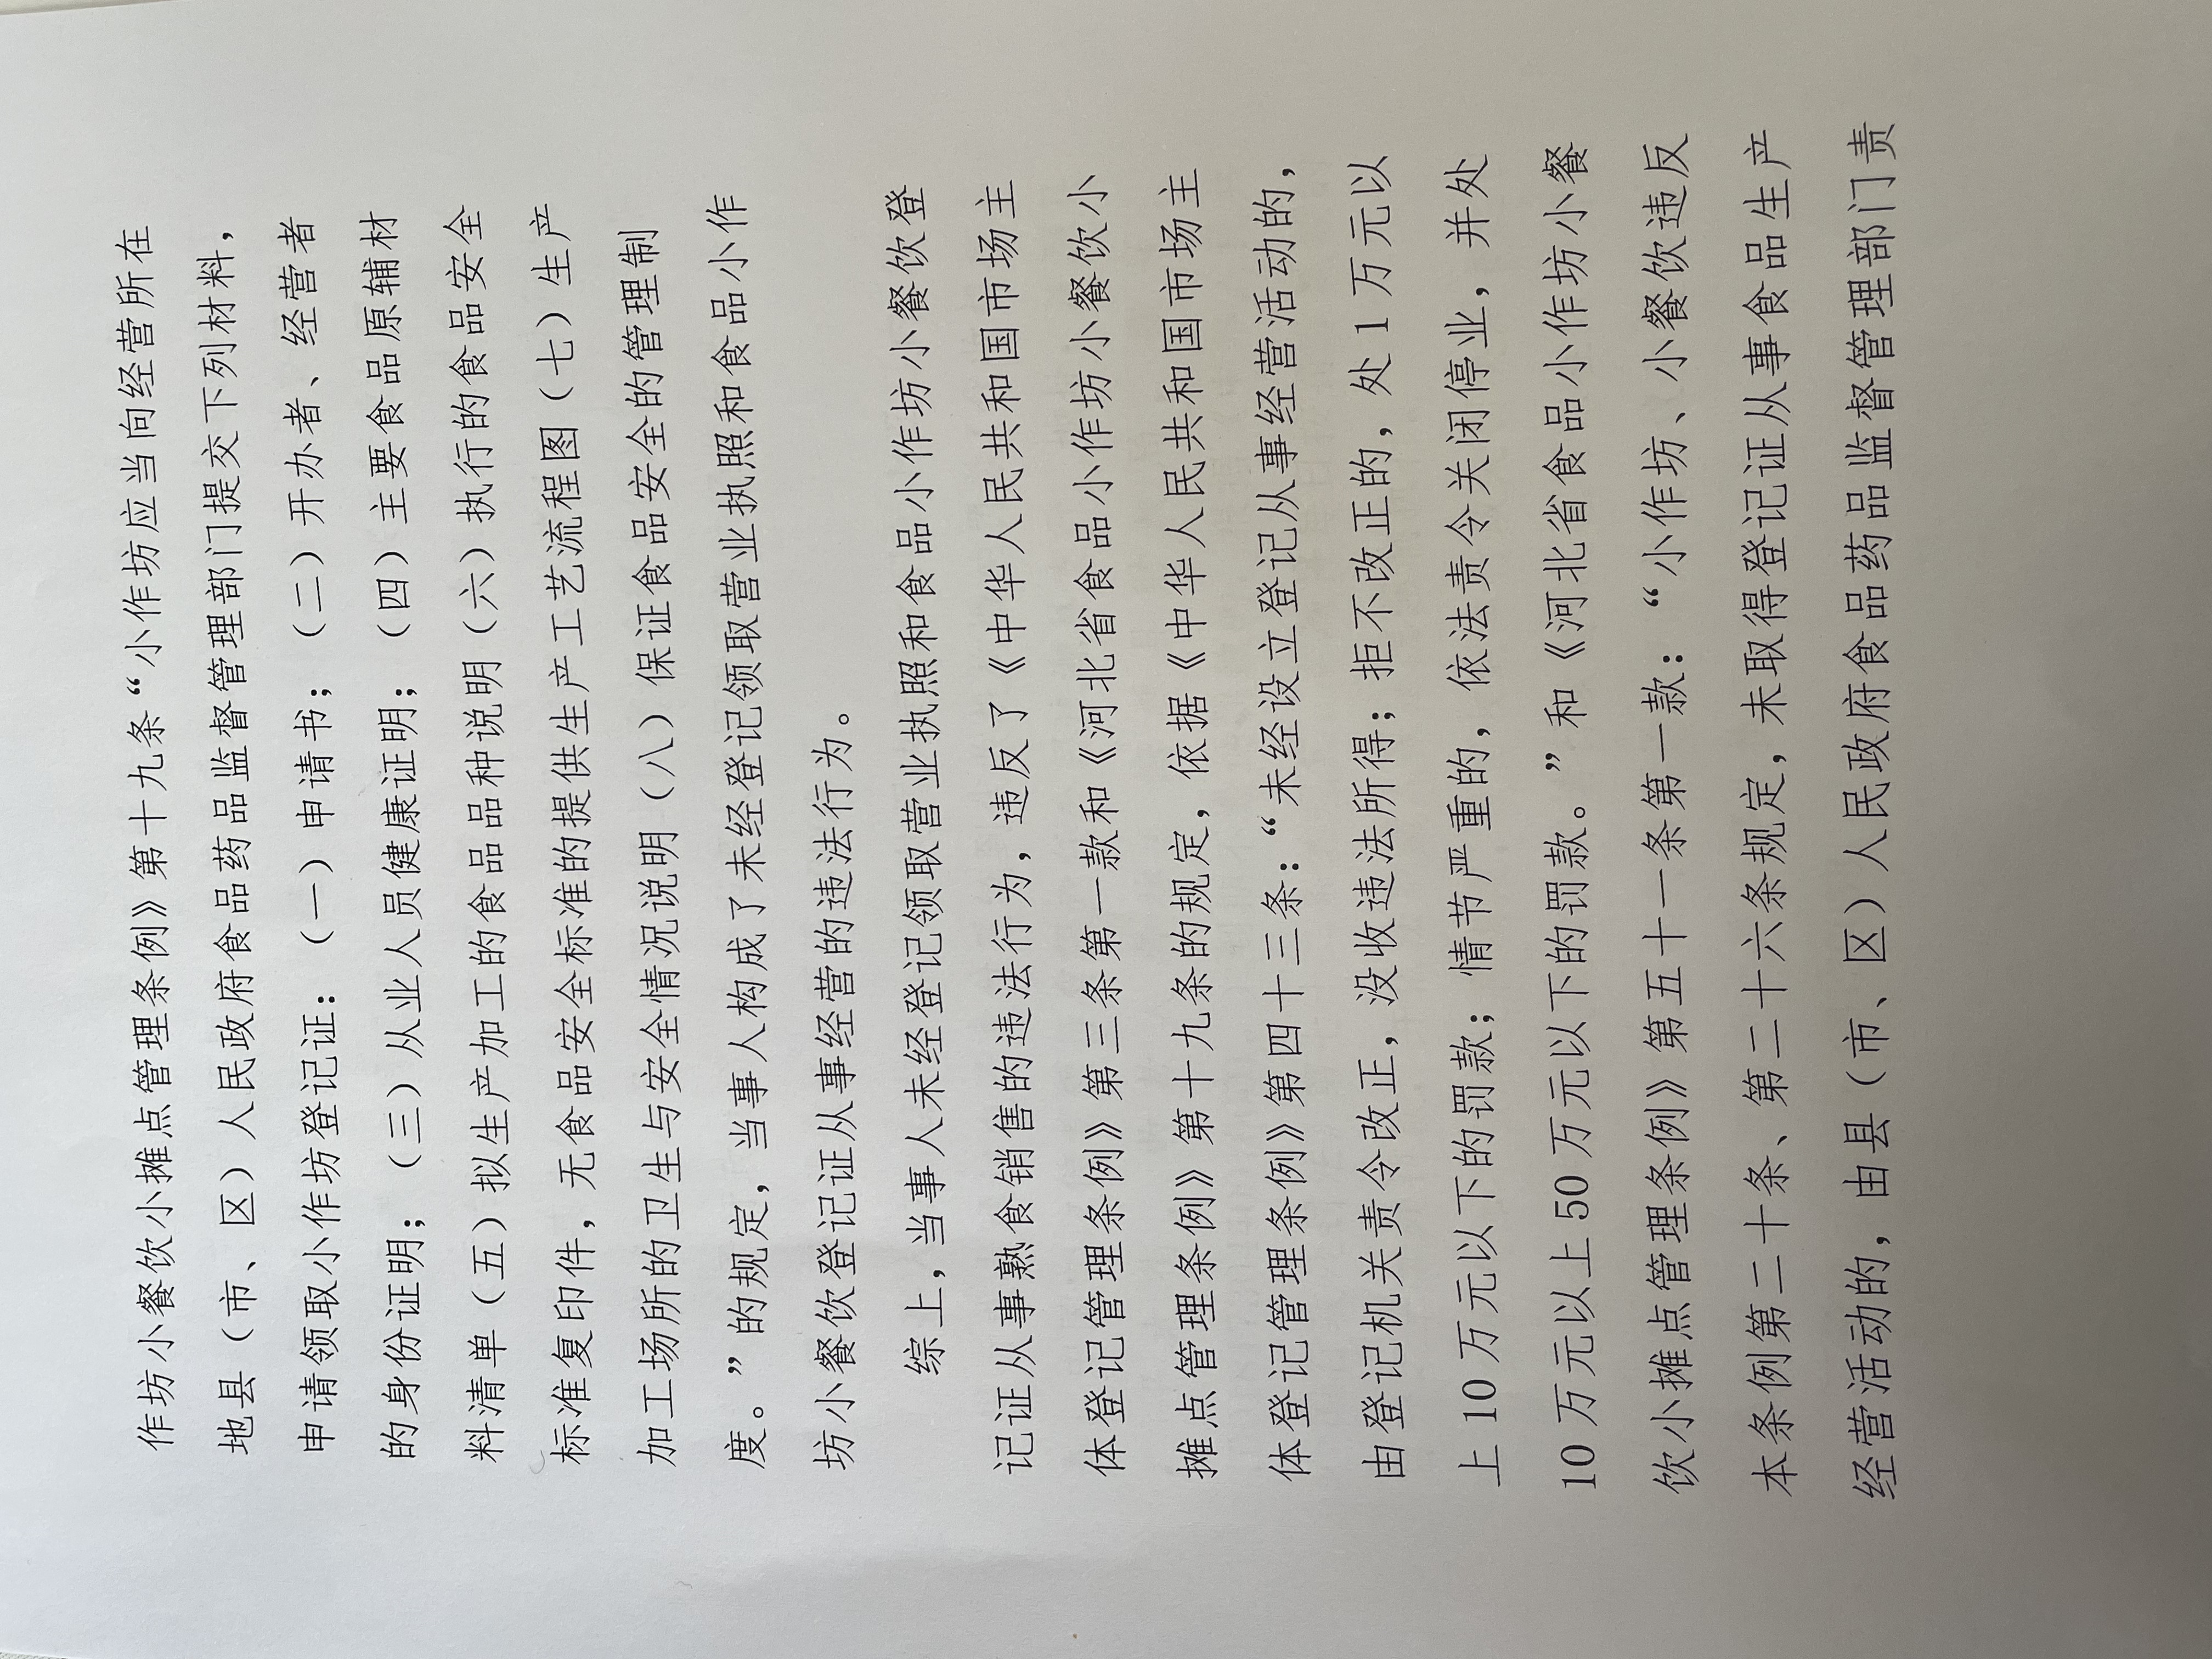 作坊小餐饮小摊点管理条例》第十九条“小作坊应当向经营所在
地县（市、区）人民政府食品药品监督管理部门提交下列材料，
申请领取小作坊登记证：（一）申请书；（二）开办者、经营者
的身份证明；（三）从业人员健康证明；（四）主要食品原辅材
料清单（五）拟生产加工的食品品种说明（六）执行的食品安全
标准复印件，无食品安全标准的提供生产工艺流程图（七）生产
加工场所的卫生与安全情况说明（八）保证食品安全的管理制
度。”的规定，当事人构成了未经登记领取营业执照和食品小作
坊小餐饮登记证从事经营的违法行为。
综上，当事人未经登记领取营业执照和食品小作坊小餐饮登
记证从事熟食销售的违法行为，违反了《中华人民共和国市场主
体登记管理条例》第三条第一款和《河北省食品小作坊小餐饮小
摊点管理条例》第十九条的规定，依据《中华人民共和国市场主
体登记管理条例》第四十三条：“未经设立登记从事经营活动的，
由登记机关责令改正，没收违法所得；拒不改正的，处1万元以
上10万元以下的罚款；情节严重的，依法责令关闭停业，并处
10万元以上50万元以下的罚款。”和《河北省食品小作坊小餐
饮小摊点管理条例》第五十一条第一款：“小作坊、小餐饮违反
本条例第二十条、第二十六条规定，未取得登记证从事食品生产
经营活动的，由县（市、区）人民政府食品药品监督管理部门责